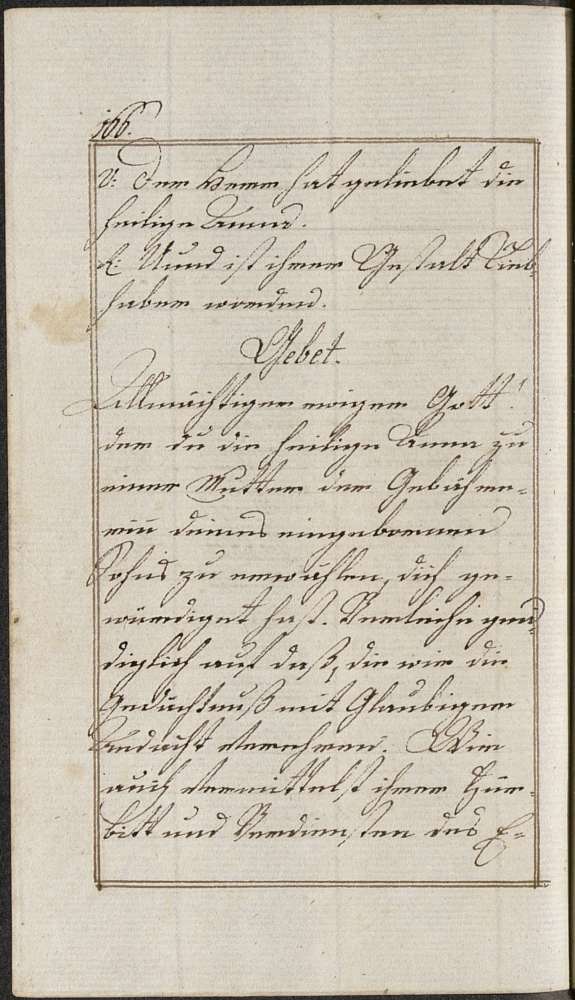 166.
V: Der Herr hat geliebet die
heilige Anna.
R: Uund ist ihrer Gestalt Lieb¬
haber worden.
Gebet.
Allmächtiger ewiger Gott!
der du die heilige Anna zu
einer Mutter der Gebähre¬
rin deines eingebornen
Sohns zu erwählen, dich ge¬
würdiget hast. Verleihe gnä¬
diglich auf daß, die wir die
Gedächtnuß mit Glaubiger
Andacht verehren. Wir
auch vermittelst ihrer Für¬
bitt und Verdiensten das E¬